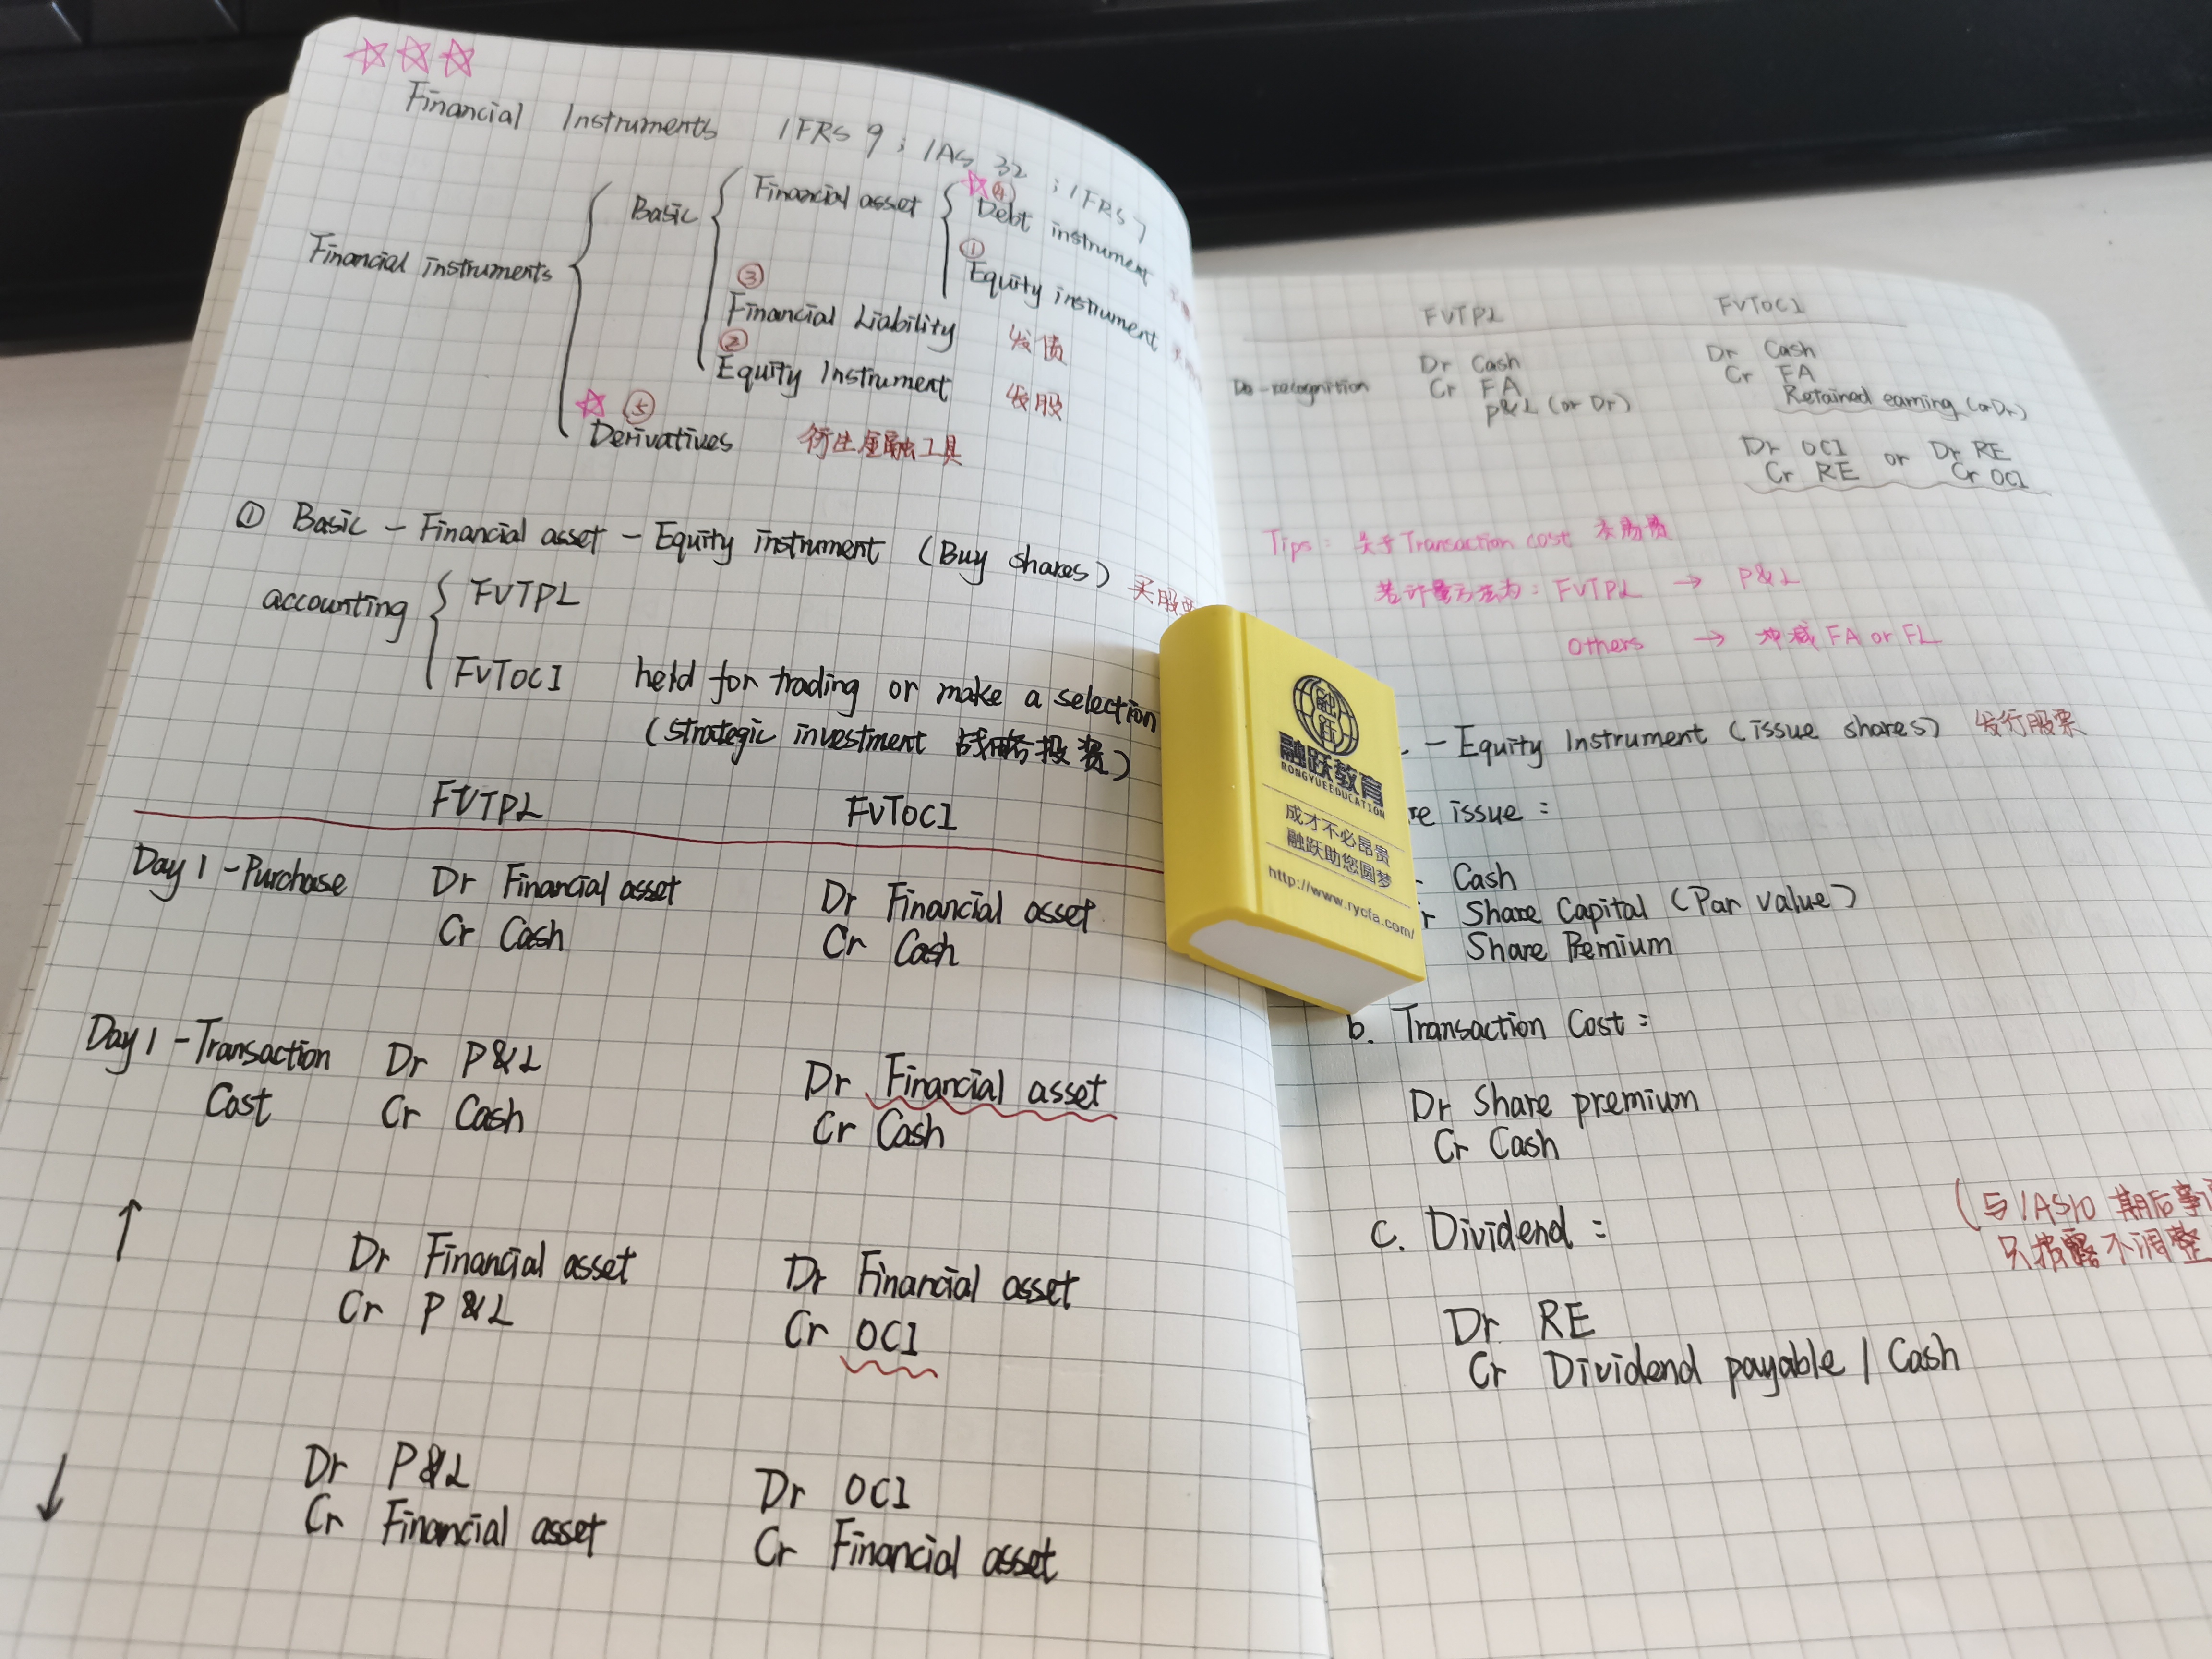 Financial Instruments IFRS 9 ; IAS 32 ; IFRS 7
Financial instruments
Basic
Financial asset
④
Debt instrument
①
Equity instrument
③
Financial Liability 发债
②
Equity Instrument 发股
⑤
Derivatives 衍生金融工具
① Basic - Financial asset - Equity instrument (Buy shares) 买股
accounting
FVTPL
FVTOCI held for trading or make a selection
(strategic investment 战略投资)
FVTPL FVTOCI
Day 1 - Purchase Dr Financial asset Dr Financial asset
Cr Cash Cr Cash
Day 1 - Transaction Dr P&L Dr Financial asset
Cost Cr Cash Cr Cash
↑ Dr Financial asset Dr Financial asset
Cr P&L Cr OCI
↓ Dr P&L Dr OCI
Cr Financial asset Cr Financial asset
FVTPL FVTOCI
De-recognition Dr Cash Dr Cash
Cr FA Cr FA
P&L (or Dr) Retained earning (or Dr)
Dr OCI or Dr RE
Cr RE Cr OCI
Tips: 关于Transaction cost 交易费
若计量方法为: FVTPL → P&L
others → 冲减 FA or FL
- Equity Instrument (issue shares) 发行股票
re issue :
Cash
r Share Capital (Par value)
Share Premium
b. Transaction Cost :
Dr Share premium
Cr Cash
c. Dividend : (与IAS10 期后事
只披露不调整
Dr RE
Cr Dividend payable / Cash
融跃
融跃教育
RONGYUEEDUCATION
成才不必昂贵
融跃助您圆梦
http://www.rycfa.com/